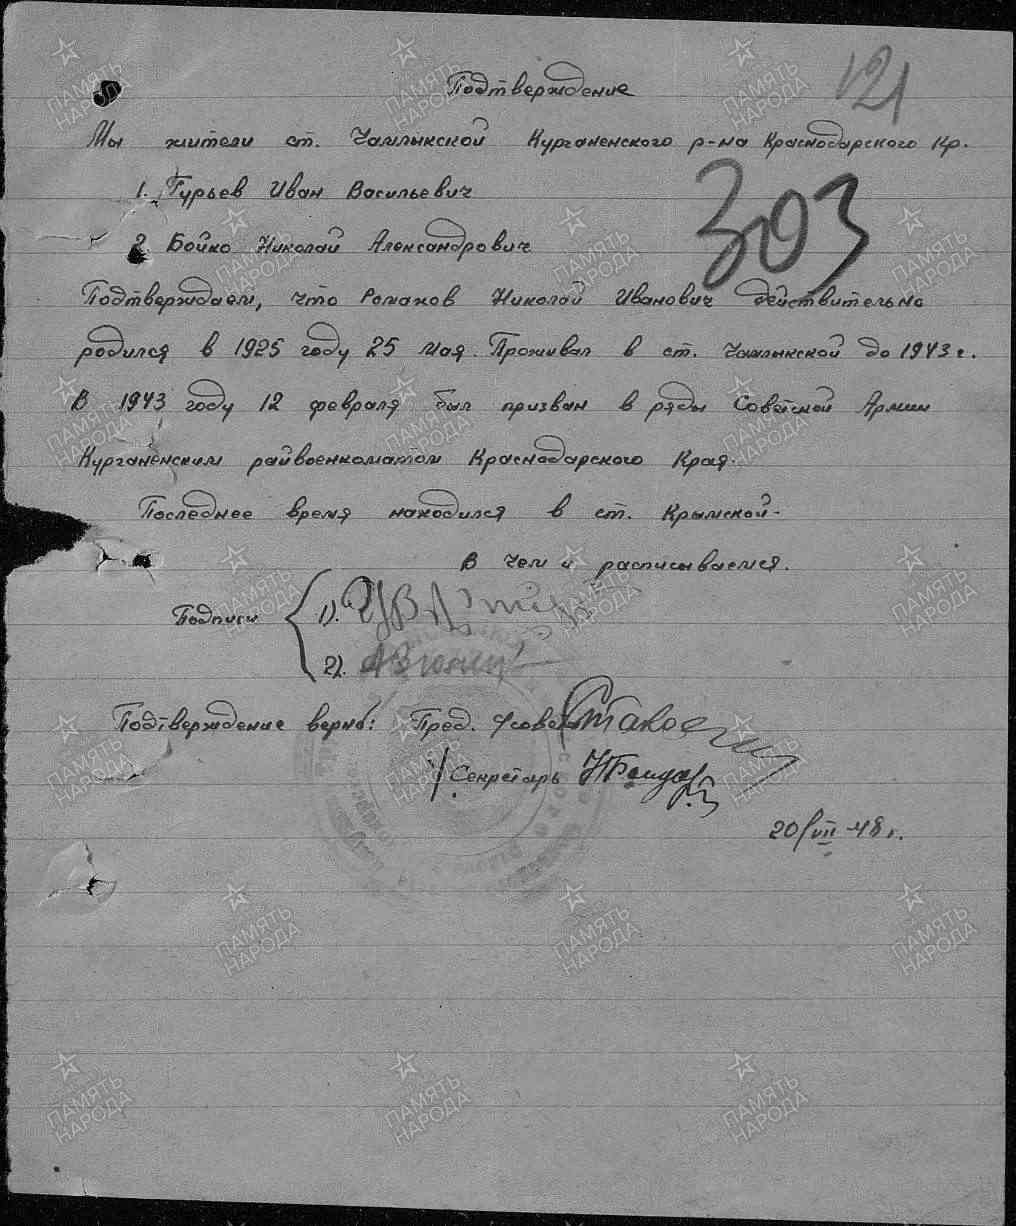 121
Подтверждение
Мы жители ст. Чамлыкской Курганенского р-на Краснодарского Кр.
1. Гурьев Иван Васильевич
303
2 Бойко Николай Александрович
Подтверждаем, что Романов Николай Иванович действительно
родился в 1925 году 25 мая. Проживал в ст. Чамлыкской до 1943 г.
В 1943 году 12 февраля был призван в ряды Советской Армии
Курганенским райвоенкоматом Краснодарского Края.
Последнее время находился в ст. Крымской.
В чем и расписываемся.
Подписи
1).
2).
Подтверждение верно: Пред. с/совета
Секретарь
20/VII-48 г.
ПАМЯТЬ НАРОДА